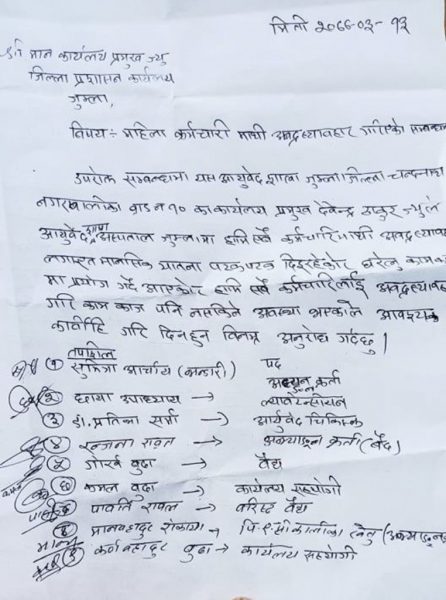 मिती २०७७-०३-१३
श्री मान कार्यालय प्रमुख ज्यू
जिल्ला प्रशासन कार्यलय
जुम्ला,
विषय:- महिला कर्मचारी माथी अभद्रव्यवहार गरिएको
उपरोक्त सम्बन्धमा यस आयुर्वेद शाखा जुम्ला जिल्ला चन्दननाथ
नगरपालीका वाड न १० का कार्यलय प्रमुख देवेन्द्र ठाकुर
आयुर्वेद शाखा अस्पताल जुम्लामा हामि सर्व कर्मचारी माथी अभद्रव्यवहार
लगायत मानसिक यातना दिइरहेकोर घरेलु कामकाज
मा प्रयोग गर्दै आएकोर हामि सर्व कर्मचारीलाई अभद्रव्यवहार
गरि काम काज पनि नसकिने अवस्था भएकाले आवश्यक
कार्वाहि गरि दिनहुन विनम्र अनुरोध गर्दछु।
तपशिल
१ सुमित्रा आचार्य (कन्डारी) पद
२ छाया उपाध्याय → ल्यावटेक्सीयन
३ डा. प्रतिका सर्मा → आर्युवेद चिकित्सक
४ रन्जना रावत → कर्ता (बैद्य)
५ गोरख बुढा → वैद्य
६ कमल बुढा → कार्यलय सहयोगी
७ पार्वति रावल → वरिष्ट वैद्य
८ मानबहादुर रोकाया →
९ कर्णबहादुर बुढा → कार्यलय सहयोगी